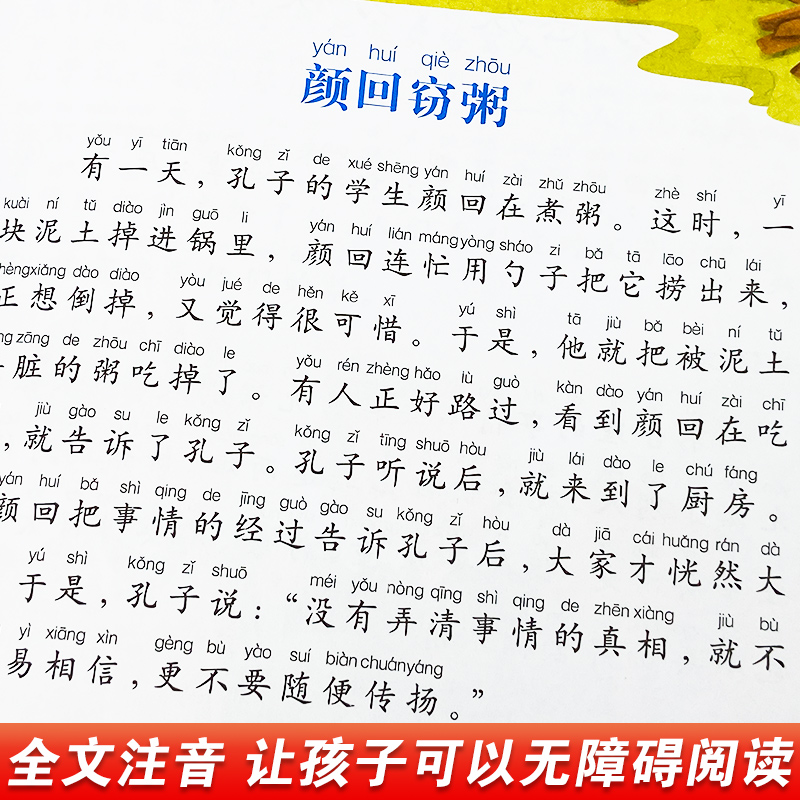 yán huí qiè zhōu
颜回窃粥
yǒu yī tiān kǒng zǐ de xué shēng yán huí zài zhǔ zhōu zhè shí yī
有一天，孔子的学生颜回在煮粥。这时，一
kuài ní tǔ diào jìn guō li yán huí lián máng yòng sháo zi bǎ tā lāo chū lái
块泥土掉进锅里，颜回连忙用勺子把它捞出来，
xiǎng dào diào yòu jué de hěn kě xī yú shì tā jiù bǎ bèi ní tǔ
正想倒掉，又觉得很可惜。于是，他就把被泥土
zāng de zhōu chī diào le yǒu rén zhèng hǎo lù guò kàn dào yán huí zài chī
脏的粥吃掉了。有人正好路过，看到颜回在吃
jiù gào su le kǒng zǐ kǒng zǐ tīng shuō hòu jiù lái dào le chú fáng
，就告诉了孔子。孔子听说后，就来到了厨房。
yán huí bǎ shì qing de jīng guò gào su kǒng zǐ hòu dà jiā cái huǎng rán dà
颜回把事情的经过告诉孔子后，大家才恍然大
yú shì kǒng zǐ shuō méi yǒu nòng qīng shì qing de zhēn xiàng jiù bù
于是，孔子说：“没有弄清事情的真相，就不
yì xiāng xìn gèng bù yào suí biàn chuán yáng
易相信，更不要随便传扬。”
全文注音 让孩子可以无障碍阅读